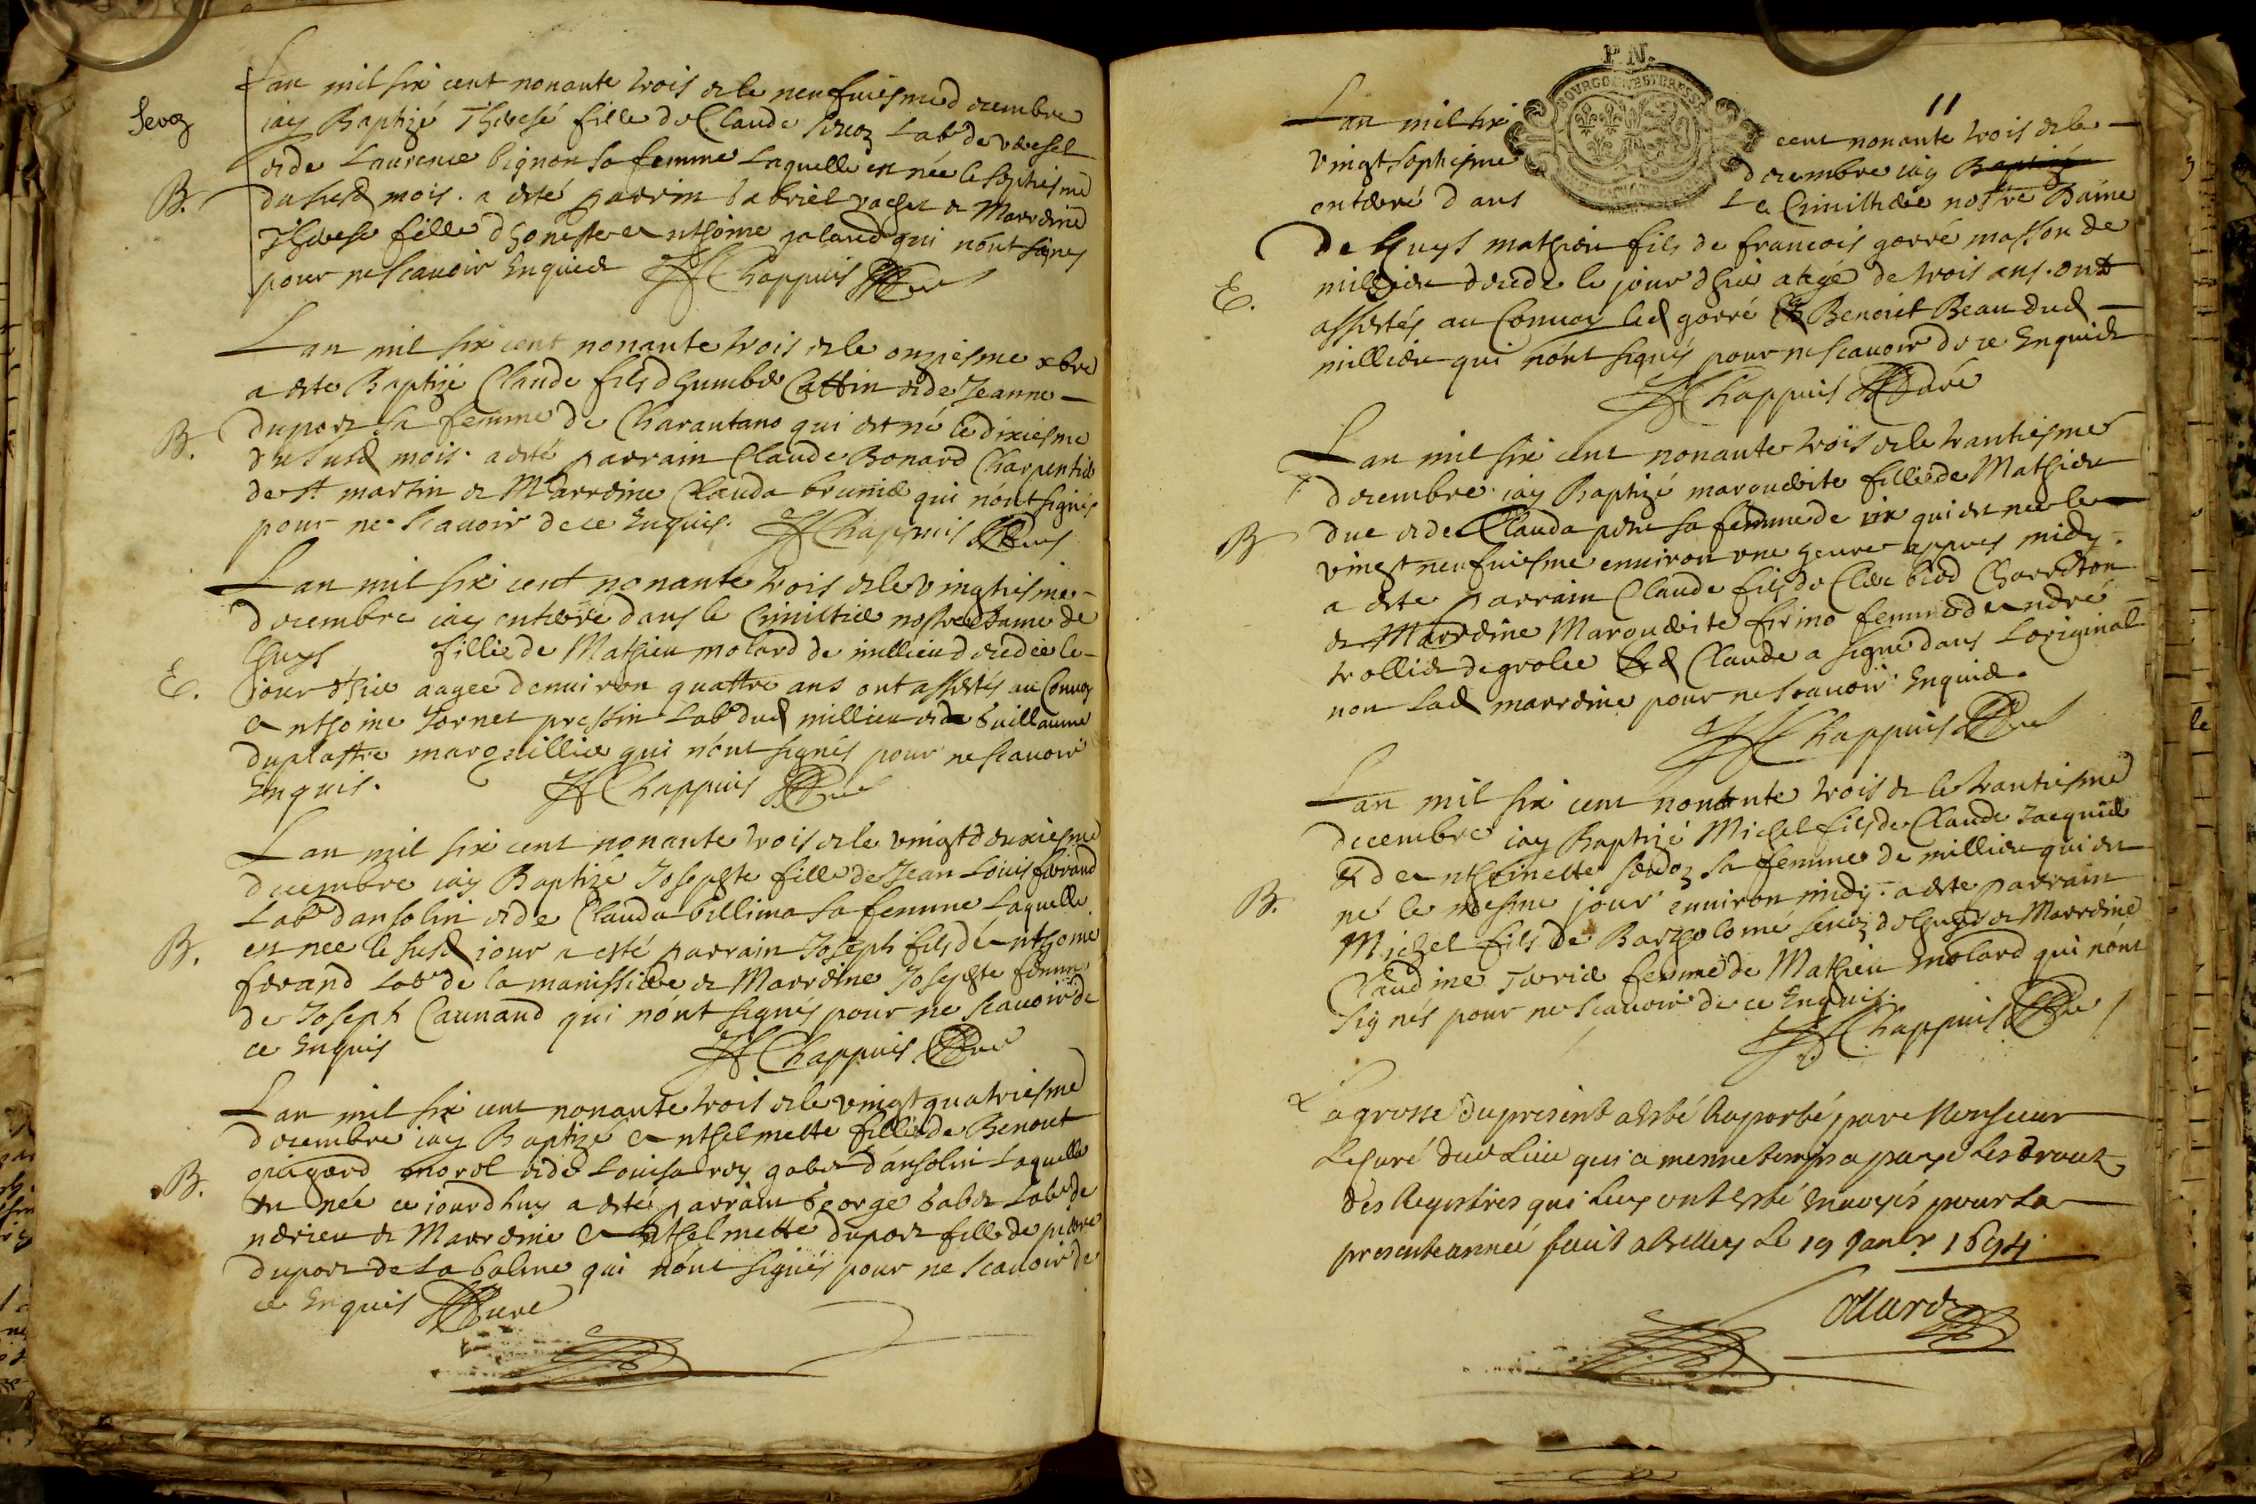 Sevoz
Lan mil six cent nonante trois et le neufuiesme decembre
iay Baptizé Therese fille de Claude Sevoz Labr de
et de Laurence bignon sa femme Laquelle est née le septiesme
B.
du susd mois. a esté parrin Gabriel vachet et Marreine
Therese fille d'honeste Anthoine galand qui nónt signes
pour ne scauoir Enquis Chappuis Cure
Lan mil six cent nonante trois et le onziesme xbre
a este Baptizé Claude fils d'humber Cattin et de Jeanne
B.
duport sa femme de Charantano qui est né le dixiesme
du susd mois. a esté parrain Claude Bonard Charpentier
de st martin et Marreine Clauda brunier qui nónt signés
pour ne scauoir de ce Enquis. Chappuis Cure
Lan mil six cent nonante trois et le vingtiesme
decembre iay enterré dans le Cimistiere nostre Dame de
E.
Chuys fille de Mathieu molard de millieu decedée le
jour d'hier aagee denuiron quattre ans ont assistés au Conuoy
Anthoine Jornet pressin Labr dud millieu et de Guillaume
duplattre marguillier qui nónt signés pour ne scauoir
Enquis. Chappuis Cure
Lan mil six cent nonante trois et le vingt deuxiesme
decembre iay Baptizé Josephte fille de Jean Louis ferand
Labr dansolin et de Clauda billima sa femme Laquelle
B.
est nee le susd iour a esté parrain Joseph fils de Anthoine
ferand Labr de la manissiere et Marreine Josephte femme
de Joseph Caunand qui nónt signés pour ne scauoir de
ce Enquis Chappuis Cure
Lan mil six cent nonante trois et le vingt quatriesme
decembre iay Baptizé Anthelmette fille de Benoit
B.
morel et de Louisa rey gaber dánsolin Laquelle
est née ce iourdhuy a esté parrain George Gaber Labr de
nerieu et Marreine Anthelmette duport fille de pierre
duport de La balme qui nónt signés pour ne scauoir de
ce Enquis Cure
P. N.
BOURGOGNE ET BRESSE
11
Lan mil six cent nonante trois et le
vingt septiesme decembre iay Baptizé
enterré dans Le Cimistiere nostre Dame
de Chuys mathieu fils de francois gorré masson de
E.
millieu decede le jour dhier aagé de trois ans. ont
assistés au Conuoy led gorré et Benoict Beau dud
millieu qui nónt signés pour ne scauoir de ce Enquis
Chappuis Curé
Lan mil six cent nonante trois et le trantiesme
decembre iay Baptizé marguerite fille de Mathieu
B
duc et de Clauda sa femme de vix qui est née le
vingt neufuiesme enuiron vne heure appres midy.
a este parrain Claude fils de Clere biod Charreton
et Marreine Marguerite firino femme de Andre
trollier de grolee Led Claude a signé dans Loriginal
non Lad marreine pour ne scauoir Enquis.
Chappuis Cure
Lan mil six cent nonante trois et le trantiesme
decembre iay Baptizé Michel fils de Claude Jacquier
et de Antheinette sa femme de millieu qui est
B.
né le mesme jour enuiron midy. a este parrain
Michel fils de Bartholomé Sevoz de Chuys et Marreine
Claudine femme de Mathieu molard qui nónt
signés pour ne scauoir de ce Enquis.
Chappuis Cure
La grosse du present a esté Raporté par Monsieur
Le curé dud Lieu qui a mesme temps a payé Les droict
des Registres qui Luy ont esté Enuoyés pour La
presente année faict a Belley Le 19 Janer 1694